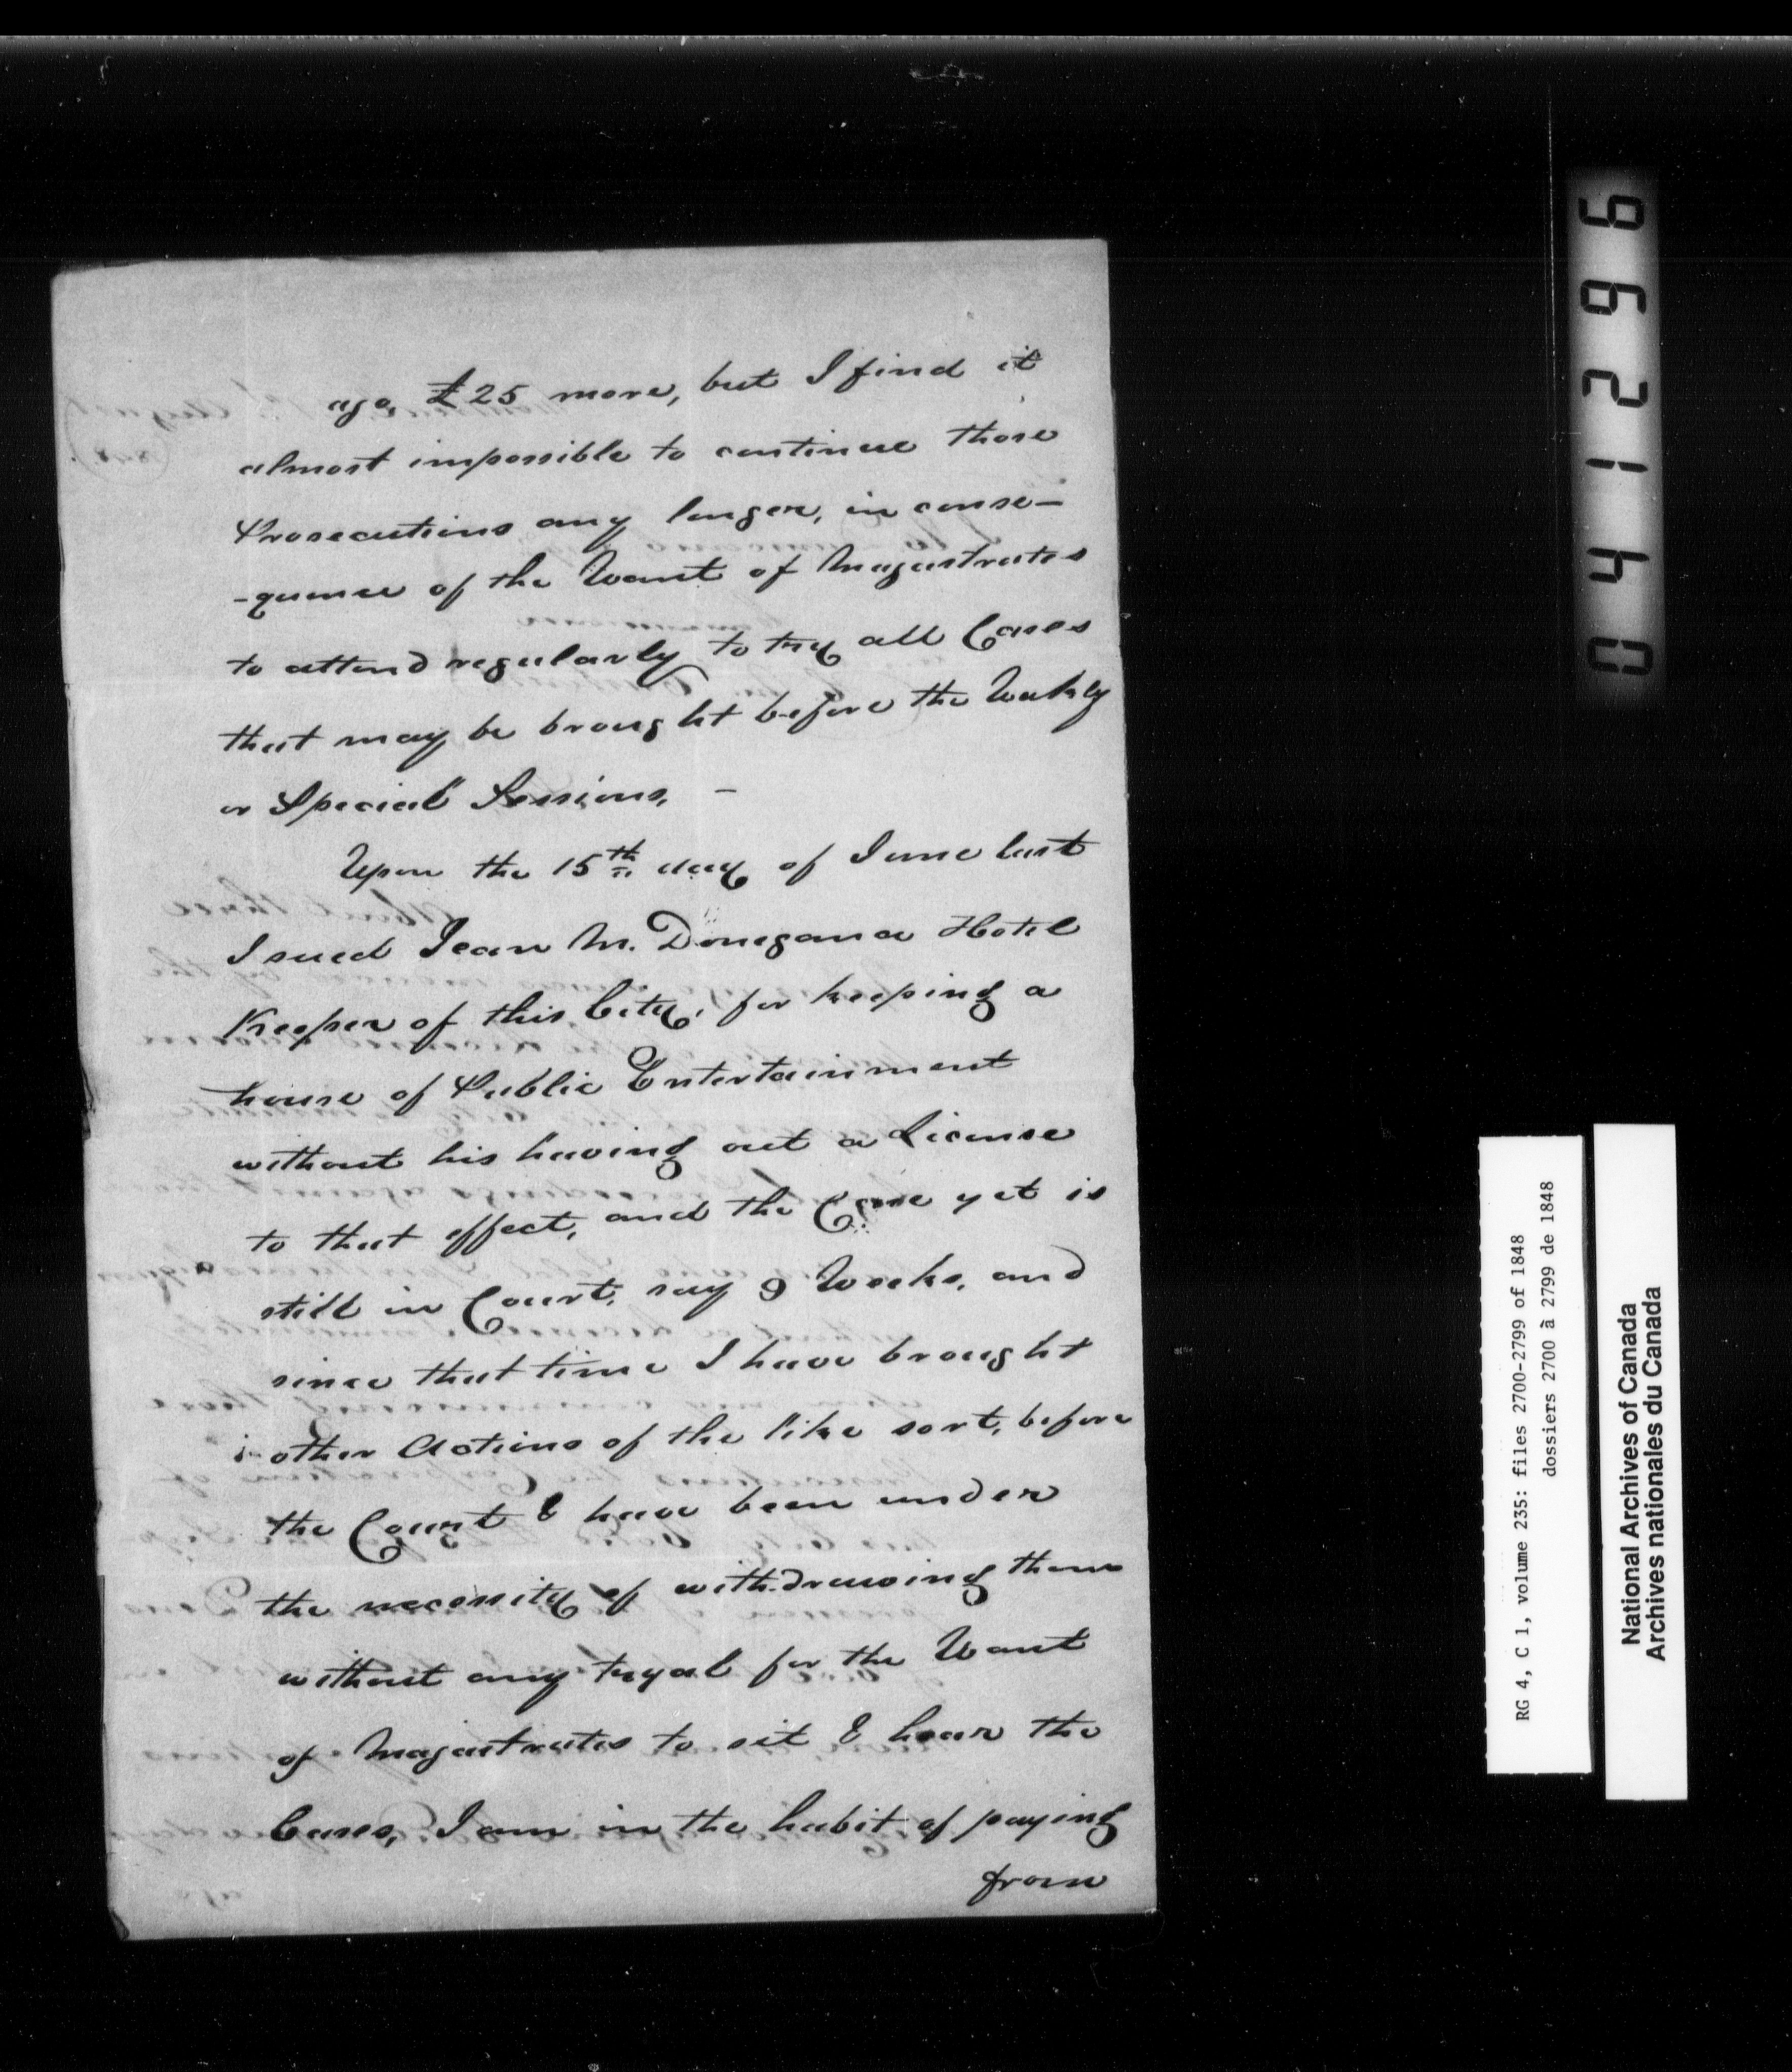 ago, £25 more, but I find it
almost impossible to continue those
Prosecutions any longer, in conse-
-quence of the Want of Magastrates
to attend regularly to try all Cases
that may be brought before the Weekly
or Special Sessions, -
Upon the 15th day of June last
I sued Jean M. Donegana Hotel
Keeper of this City, for keeping a
house of Public Entertainment
without his having out a License
to that effect, and the Case yet is
still in Court, say 9 Weeks, and
since that time I have brought
other Actions of the like sort, before
the Court & have been under
the necessity of withdrawing them
without any tryal for the Want
of Magastrates to sit & hear the
Cases, I am in the habit of paying
from
041296
RG 4, C 1, volume 235: files 2700-2799 of 1848
dossiers 2700 à 2799 de 1848
National Archives of Canada
Archives nationales du Canada